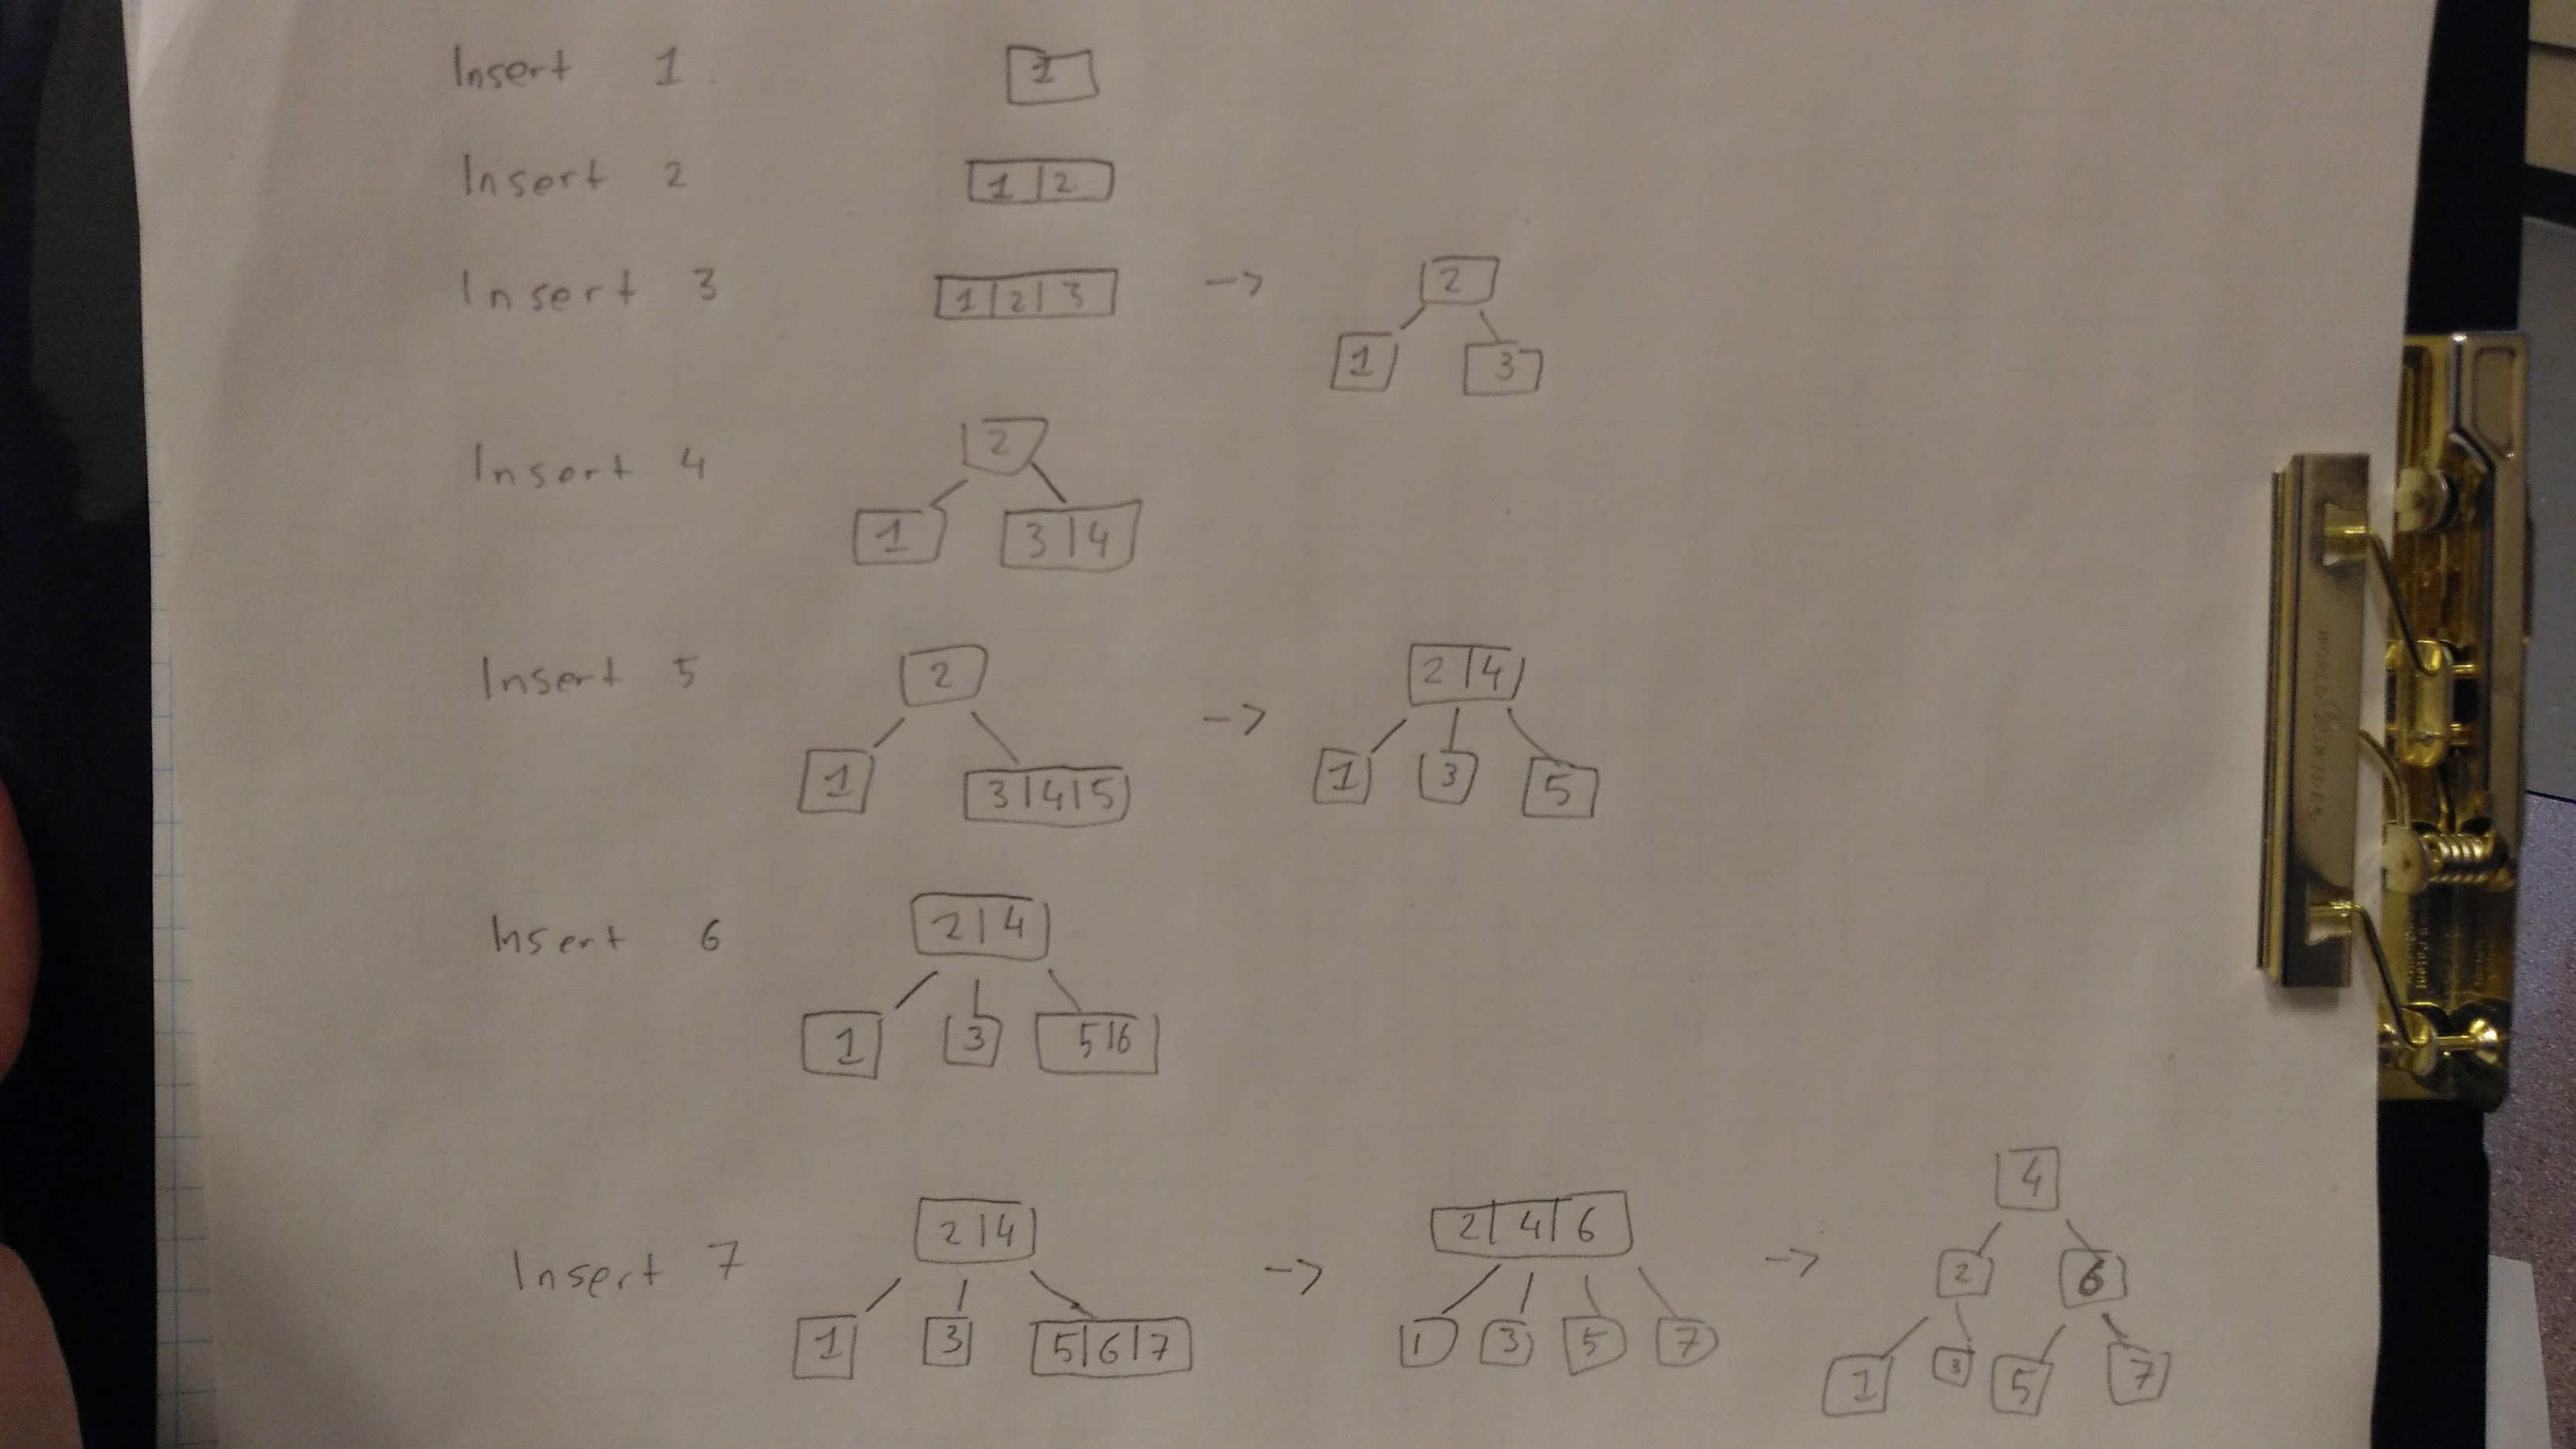 Insert 1 1
Insert 2 1 2
Insert 3 1 2 3 -> 2
1 3
Insert 4 2
1 3 4
Insert 5 2 -> 2 4
1 3 4 5 1 3 5
Insert 6 2 4
1 3 5 6
Insert 7 2 4 -> 2 4 6 -> 4
2 6
1 3 5 6 7 1 3 5 7 1 3 5 7